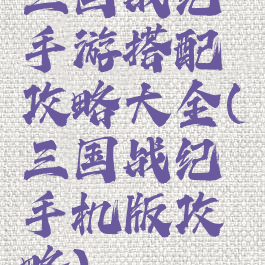 三国战纪
手游搭配
攻略大全(
三国战纪
手机版攻
略)